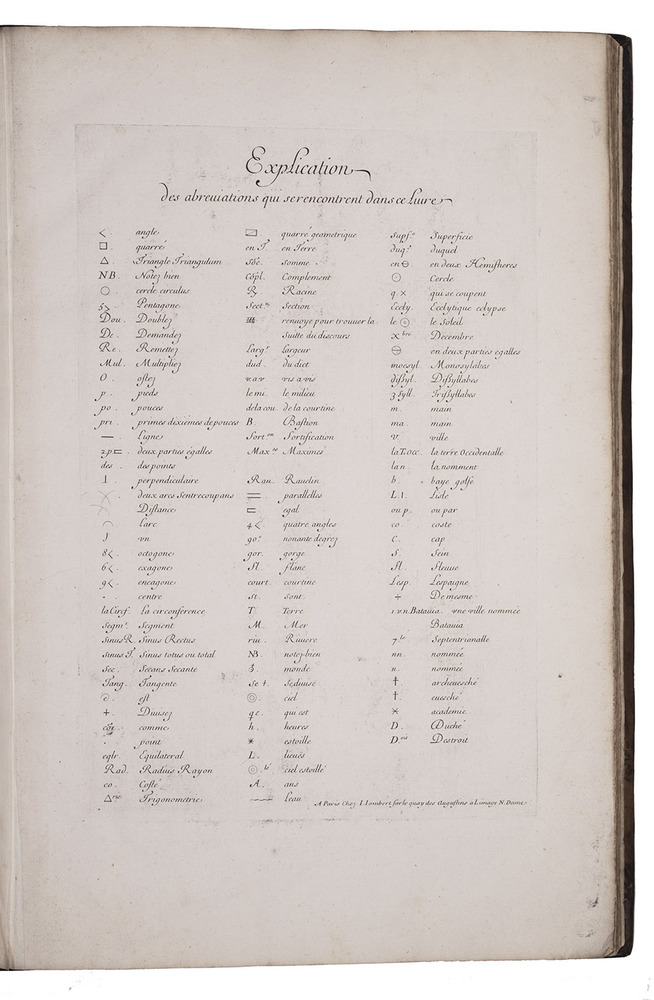 Explication
des abreuiations qui se rencontrent dans ce Liure
< . angle
□ quarré
△ . Triangle Triangulum
NB. Notez bien
○ cercle circulus
5> Pentagone
Dou . Doublez
De . Demandez
Re . Remettez
Mul . Multipliez
O . ostez
p . pieds
po . pouces
pri . primes dixiemes de pouces
— . Ligne
2.p⊏ . deux parties egalles
des . des points
⊥ perpendiculaire
deux arcs Sentrecoupans
Distance
⌒ Larc
J un
8< . octogone
6< . exagone
9< . eneagone
. centre
la Circf. La circonference
Segmt. Segment
sinus R. Sinus Rectus
sinus T. Sinus totus ou total
Sec . Secans Secante
Tang . Tangente
est
+ . Diuisez
comme
. point
eqlr . Equilateral
Rad . Raduis Rayon
co . Costé
△rie Trigonometrie
quarré geometrique
en T en Terre
Somme
Cõpl. Complement
℞. Racine
Sect.on Section
renuoye pour trouuer la
Suitte du discours
Larg.r Largeur
dud . du dict
v.a.v vis a vis
le mi . le milieu
de la cou . de la courtine
B. Bastion
Fort.on Fortification
Max.es Maximes
Rau . Rauelin
= parallelles
⊏ egal
4< quatre angles
90.e nonante degrez
gor. gorge
fl . flanc
court . courtine
st . sont
T. Terre
M. Mer
riu . Riuiere
NB. notez bien
monde
Se t . Seduise
◎ . ciel
q e . qui est
h . heures
* estoille
L. lieuës
◎.lé ciel estoillé
A . ans
Leau
supf.e Superficie
duq.l duquel
en ⊖ en deux Hemispheres
⊙ Cercle
q . × qui se coupent
Eccly . Ecclytique eclypse
le ⊙ le Soleil
X bre Decembre
⊖ en deux parties egalles
mocsyl . Monosylabes
dissyl . Dissyllabes
3 syll . Trissyllabes
m . main
ma . main
v . ville
la T. occ . la terre Occidentalle
la n . la nomment
b . baye golfe
L. I . Lisle
ou p . ou par
co . coste
C . cap
S . Sein
fl . fleuue
Lesp . Lespaigne
÷ De mesme
1 v n . Batauia . vne ville nommée
Batauia
7.le Septentrionalle
nn . nommée
n . nommée
† archeuesché
† . euesché
* academie
D . Duché
D.oit Destroit
A Paris Chez I. Lombert sur le quay des Augustins a Limage N. Dame